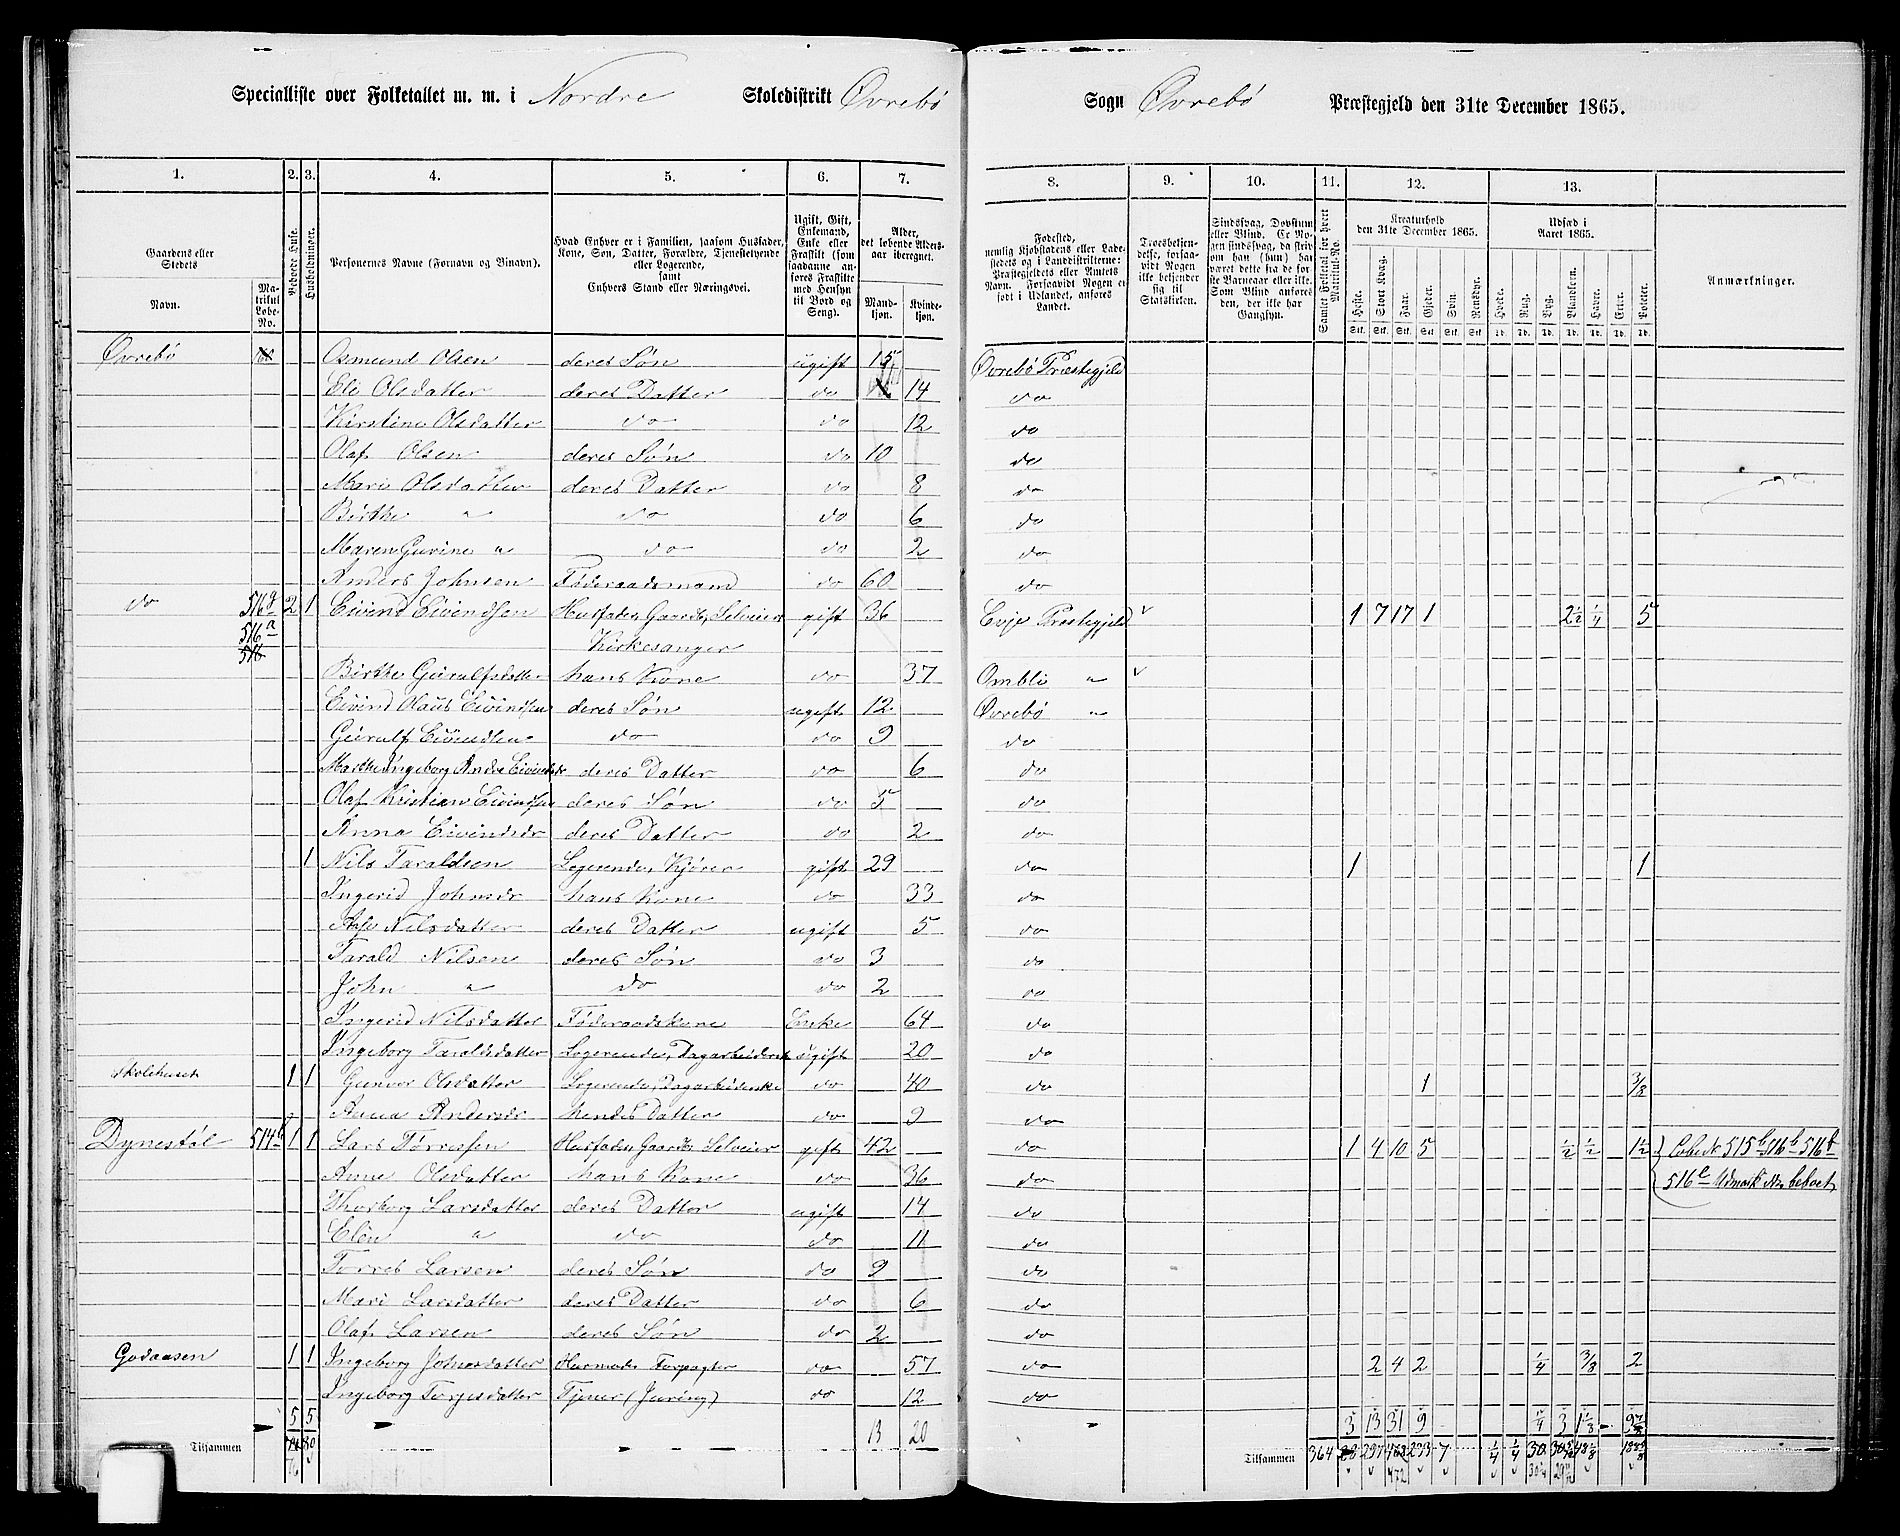 Specialliste over Folketallet m. m. i Nordre Skoledistrikt Øvrebø Sogn Øvrebø Præstegjeld den 31te December 1865.
1. 2. 3. 4. 5. 6. 7. 8. 9. 10. 11. 12. 13.
Gaardens eller Stedets
Navn. Matrikul Løbe-No.
Beboede Huse.
Husholdninger.
Personernes Navne (Fornavn og Tilnavn).
Hvad Enhver er i Familien, saasom Husfader, Kone, Søn, Datter, Forældre, Tjenestetyende eller Logerende, samt Enhvers Stand eller Næringsvei.
Ugift, Gift, Enkemand, Enke eller Fraskilt (som saadanne anføres Fraskilte med Hensyn til Bord og Seng).
Alder, det løbende Alders-aar iberegnet.
Mandkjøn. Kvindekjøn.
Fødested, nemlig Kjøbstadens eller Ladestedets og i Landdistrikterne: Præstegjeldets eller Amtets Navn. Forsaavidt Nogen er født i Udlandet, anføres Landet.
Troesbekjendelse, forsaavidt Nogen ikke bekjender sig til Statskirken.
Sindssvag, Døvstum eller Blind.
Samlet Folketal for hvert Matrikul-No.
Kreaturhold den 31te December 1865.
Heste. Stort Kvæg. Faar. Gjeder. Svin. Rensdyr.
Udsæd i Aaret 1865.
Hvede. Rug. Byg. Blandkorn. Havre. Erter. Poteter.
Anmærkninger.
Øvrebø Osmund Olsen deres Søn ugift 15 Øvrebø Præstegjeld
Eli Olsdatter deres Datter do 14 do
Kirstine Olsdatter do do 12 do
Olaf Olsen deres Søn do 10 do
Mari Olsdatter deres Datter do 8 do
Birthe " do do 6 do
Maren Gurine " do do 2 do
Anders Johnsen Føderaadsmand do 60 do
do 516 g 2 1 Eivind Eivindsen Husfader, Gaardb, Selveier gift 36 Evje Præstegjeld 1 7 17 1 2 1/2 1/4 5
516 a
516 Kirkesanger
Birthe Guralfsdatter hans Kone do 37 Ombli "
Eivind Olaus Eivindsen deres Søn ugift 12 Øvrebø "
Guralf Eivindsen do do 9 do
Marthe Ingeborg Andrea Eivindsdr deres Datter do 6 do
Olaf Kristian Eivindsen deres Søn do 5 do
Anna Eivindsdr deres Datter do 2 do
1 Nils Taraldsen Logerende, Kjører gift 29 do 1 1
Ingerid Johnsdr hans Kone do 33 do
Aase Nilsdatter deres Datter ugift 5 do
Tarald Nilsen deres Søn do 3 do
John " do do 2 do
Ingerid Nilsdatter Føderaadskone Enke 64 do
Ingeborg Taraldsdatter Logerende, Dagarbeiderske ugift 20 do
Skolehuset 1 1 Gunvor Olsdatter Logerende, Dagarbeiderske do 40 do 1 3/8
Anna Andersdr hendes Datter do 9 do
Dynestøl 514 b 1 1 Lars Tørresen Husfader, Gaardb, Selveier gift 42 do 1 4 10 5 1/2 1/2 1 1/2 Løbe N 515 b 516 b 516 f
Anne Olsdatter hans Kone do 36 do 516 e Udmark ikke beboet
Thorborg Larsdatter deres Datter ugift 14 do
Elen " do do 11 do
Torres Larsen deres Søn do 9 do
Mari Larsdatter deres Datter do 6 do
Olaf Larsen deres Søn do 2 do
Godaasen 1 1 Ingeborg Johnsdatter Husmoder Forpagter do 57 do 2 4 2 1/4 3/8 2
Ingeborg Torjusdatter Tjener (Juring) do 12 do
5 5 3 13 31 9
Tilsammen 13 20 Tilsammen 364 28 297 233 7 1/4 1/4 30